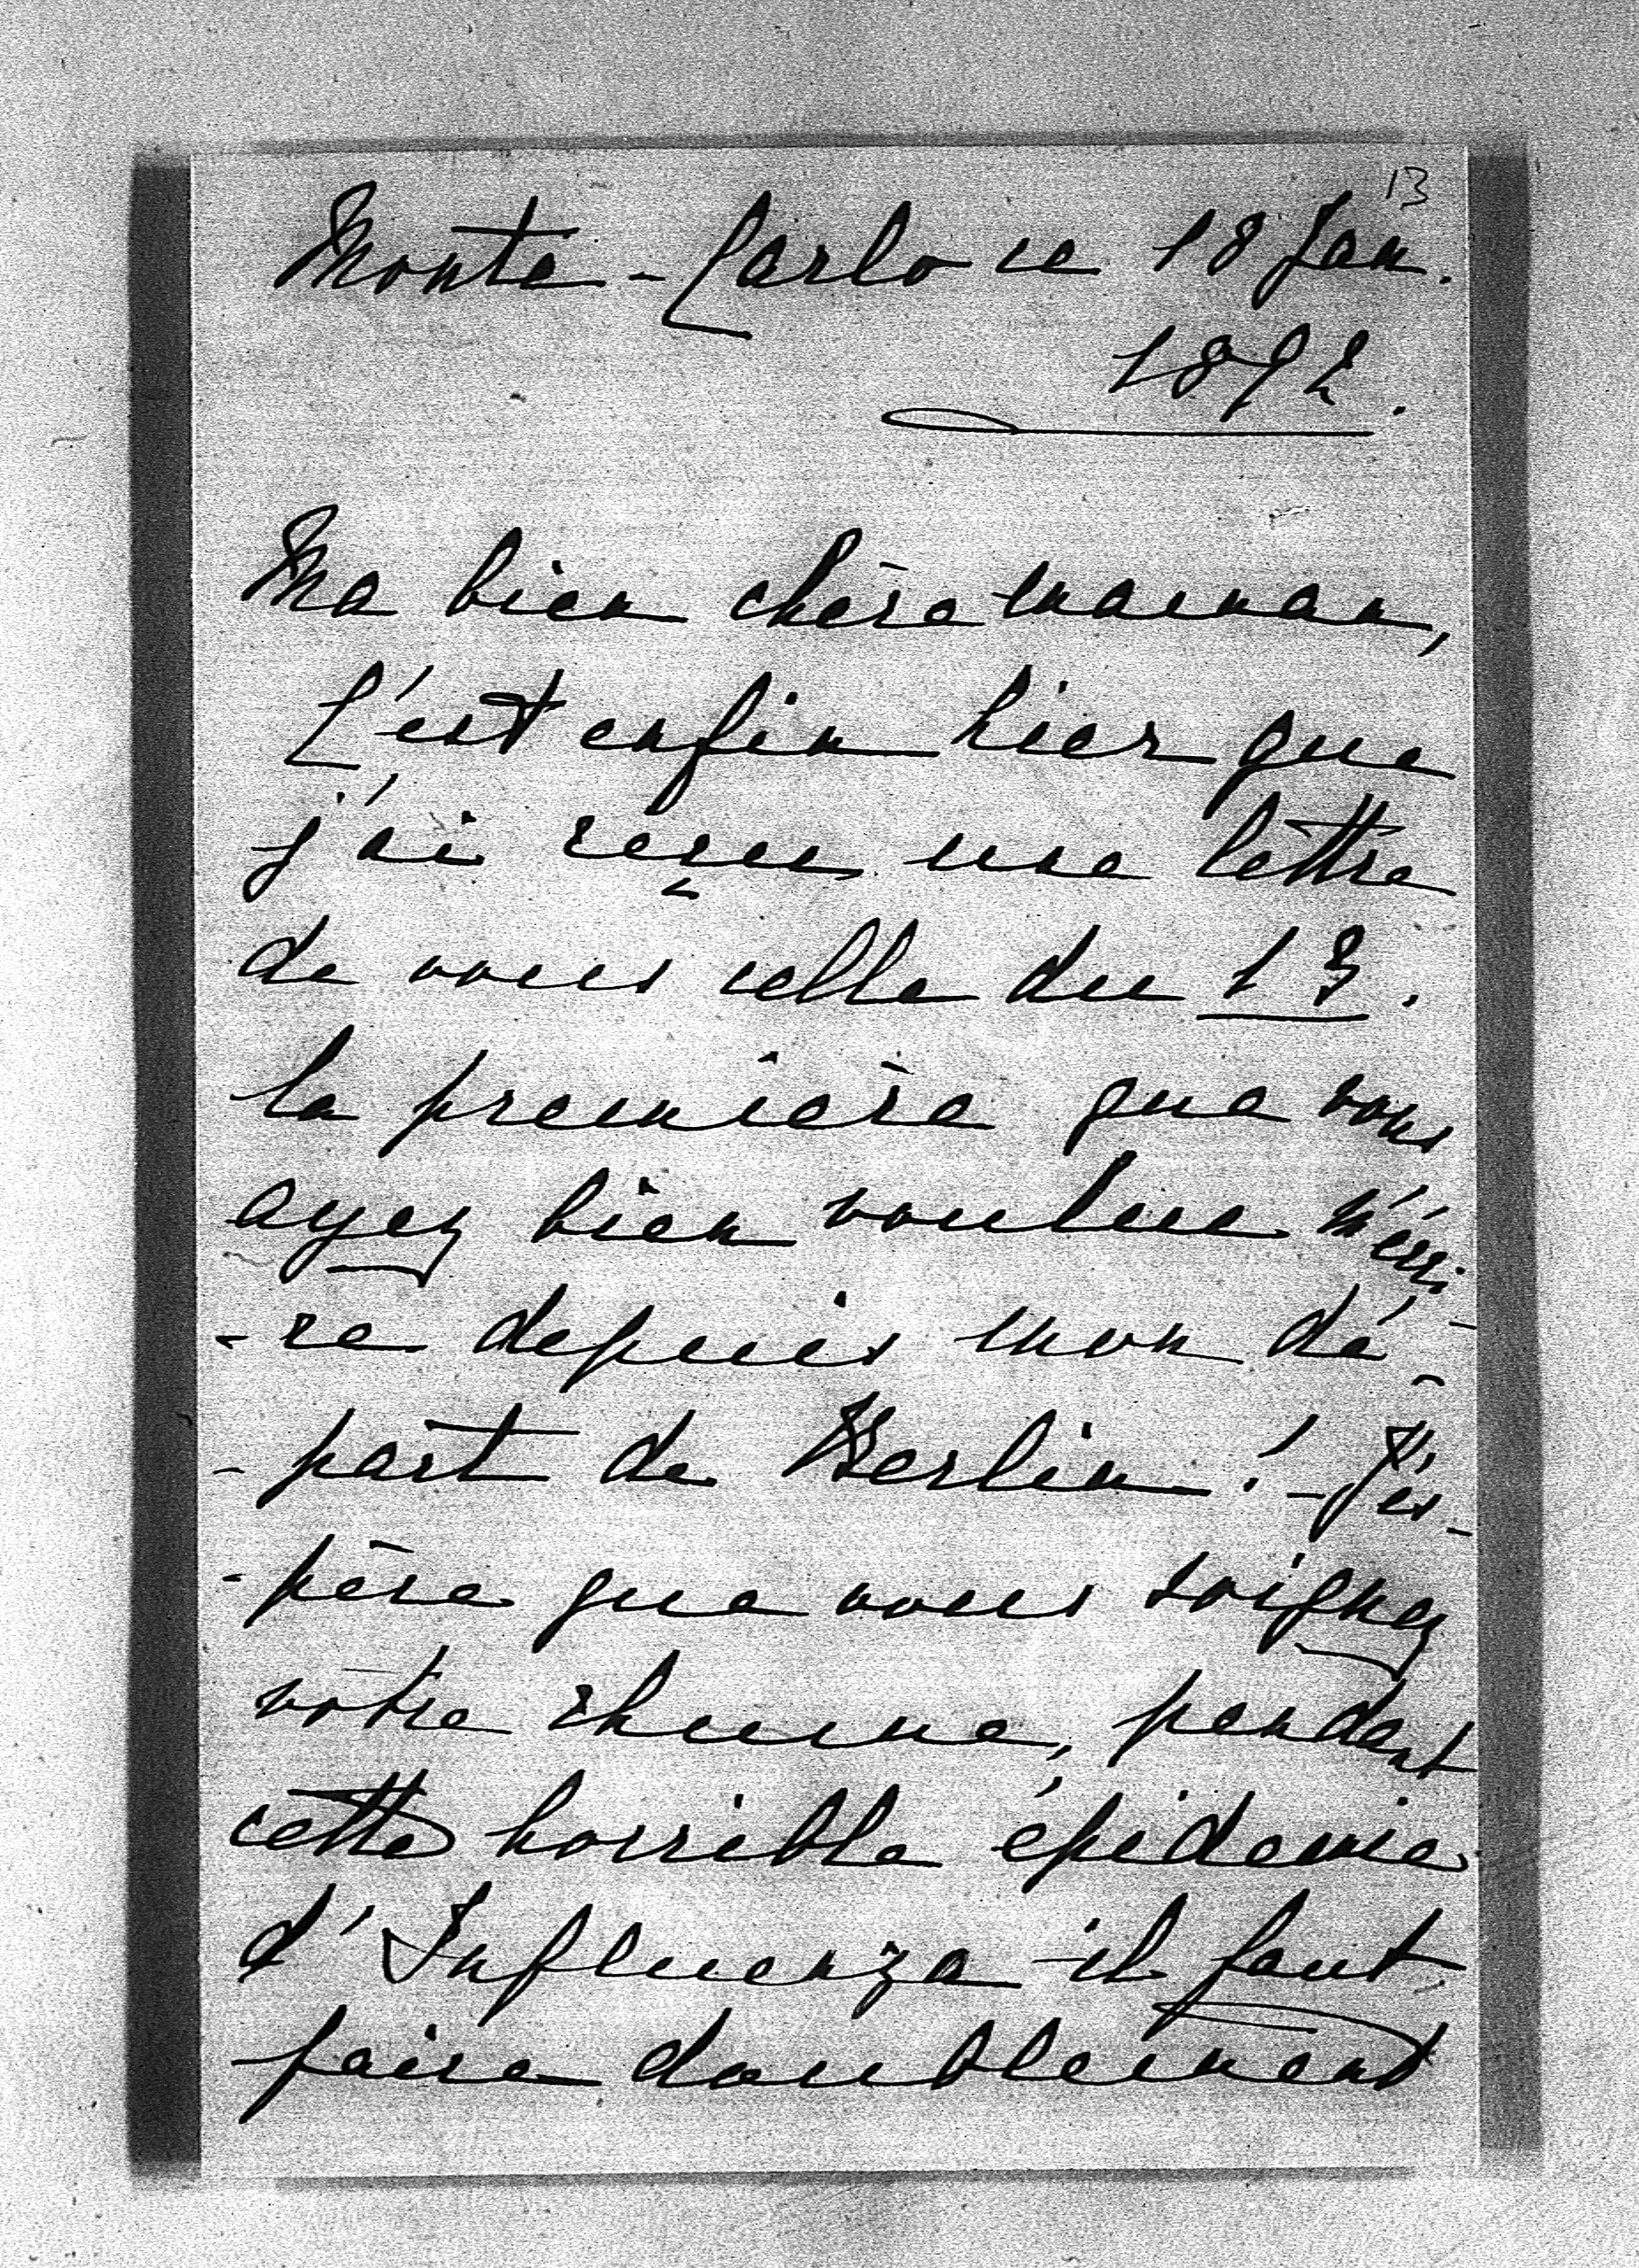 13
Monte-Carlo ce 18 Jan.
1892.
Ma bien chère maman,
C'est enfin hier que
j'ai reçue une lettre
de vous celle du 13.
la première que vous
ayez bien voulue m'écri-
-re depuis mon dé-
-part de Berlin! - J'es-
-père que vous soignez
votre rhume, pendant
cette horrible épidemie
d'Influenza il faut
faire doublement